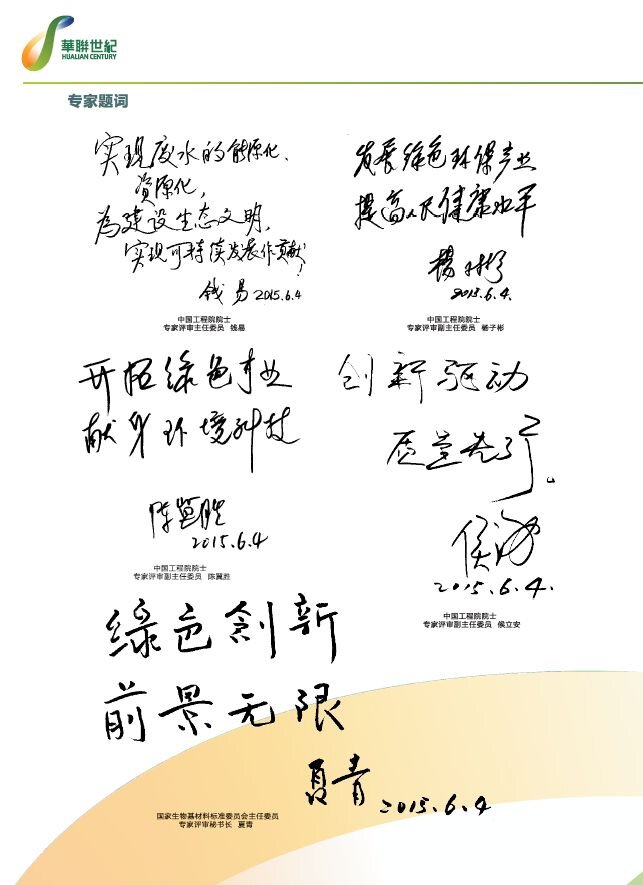 華聯世紀
HUALIAN CENTURY
专家题词
实现废水的能源化、
资源化，
为建设生态文明，
实现可持续发展作贡献！
钱易 2015.6.4
中国工程院院士
专家评审主任委员 钱易
发展绿色环保产业
提高人民健康水平
杨子彬
2015.6.4.
中国工程院院士
专家评审副主任委员 杨子彬
开拓绿色事业
献身环境科技
陈冀胜
2015.6.4
中国工程院院士
专家评审副主任委员 陈冀胜
创新驱动
质量先行。
2015.6.4.
中国工程院院士
专家评审副主任委员 侯立安
绿色创新
前景无限
夏青 2015.6.4
国家生物基材料标准委员会主任委员
专家评审秘书长 夏青